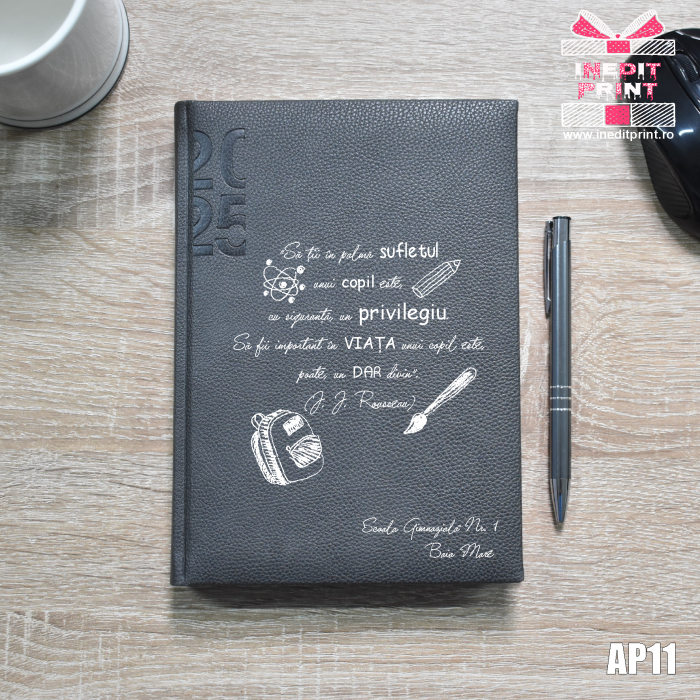 INEDIT
PRINT
www.ineditprint.ro
20
25
"Să ții în palmă sufletul
unui copil este,
cu siguranță, un privilegiu.
Să fii important în VIAȚA unui copil este,
poate, un DAR divin".
(J. J. Rousseau)
Școala Gimnazială Nr. 1
Baia Mare
AP11